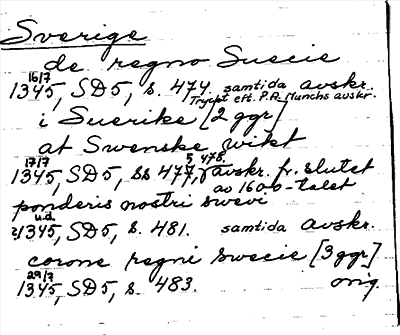 Sverige
de regno Suecie
16/7
1345, SD5, s. 474. samtida avskr.
Tryckt eft. P.A. Munchs avskr.
i Suerike [2 ggr]
at Swenske wikt
17/7
1345, SD5, ss 477, 478, avskr. fr. slutet
av 1600-talet
ponderis nostri swevi
u.d.
1345, SD5, s. 481. samtida avskr.
corone regni swecie [3 ggr]
29/7
1345, SD5, s. 483. orig.